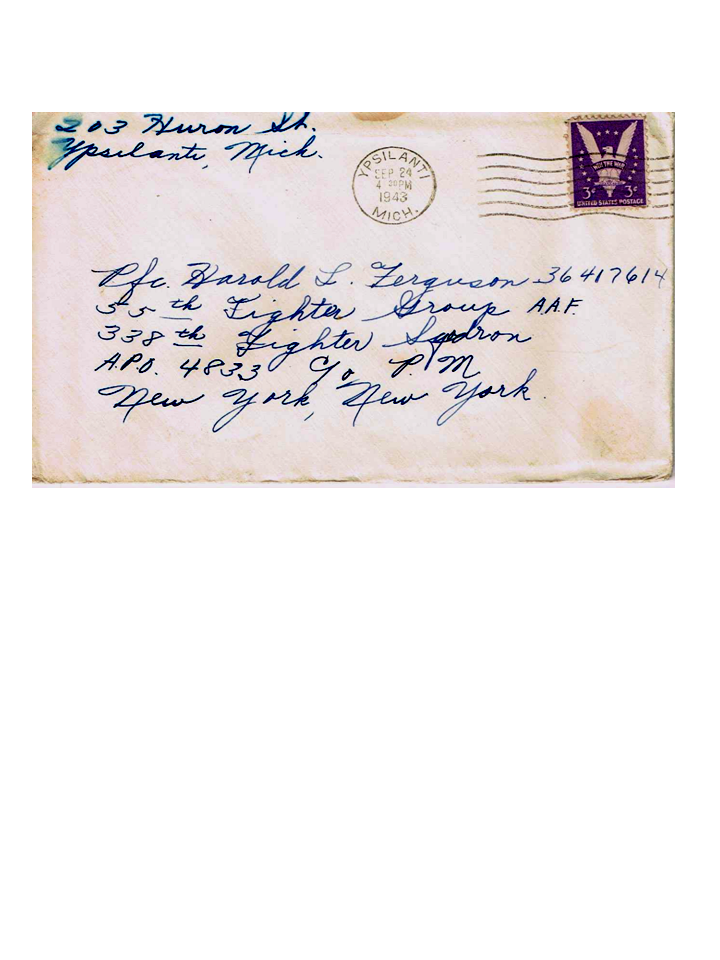 203 Huron St.
Ypsilanti, Mich.
YPSILANTI
SEP 24
4 30PM
1943
MICH.
WIN THE WAR
3¢ 3¢
UNITED STATES POSTAGE
Pfc. Harold L. Ferguson 36417614
55 th Fighter Group A.A.F.
338 th Fighter Sqdron
A.P.O. 4833 c/o P.M
New York, New York.